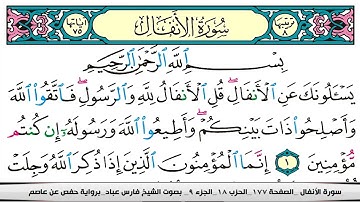 ترتيبها ٨ سُورَةُ الأَنفَالِ آياتها ٧٥
بِسْمِ ٱللَّهِ ٱلرَّحْمَٰنِ ٱلرَّحِيمِ
يَسْـَٔلُونَكَ عَنِ ٱلْأَنفَالِ ۖ قُلِ ٱلْأَنفَالُ لِلَّهِ وَٱلرَّسُولِ ۖ فَٱتَّقُوا۟ ٱللَّهَ
وَأَصْلِحُوا۟ ذَاتَ بَيْنِكُمْ ۖ وَأَطِيعُوا۟ ٱللَّهَ وَرَسُولَهُۥٓ إِن كُنتُم
مُّؤْمِنِينَ ١ إِنَّمَا ٱلْمُؤْمِنُونَ ٱلَّذِينَ إِذَا ذُكِرَ ٱللَّهُ وَجِلَتْ
سورة الأنفال _ الصفحة ١٧٧ _ الحزب ١٨ _ الجزء ٩ _ بصوت الشيخ فارس عباد _ برواية حفص عن عاصم